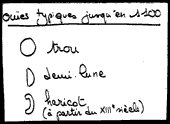 ouïes typiques jusqu'en 1100
trou
demi-lune
haricot
(à partir du XIIIe siècle)